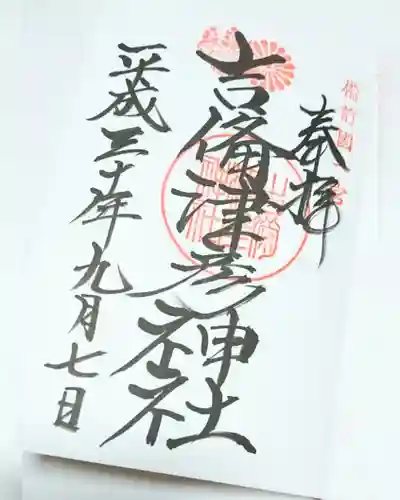 備前國一宮
奉拝
吉備津彦神社
平成三十年九月七日